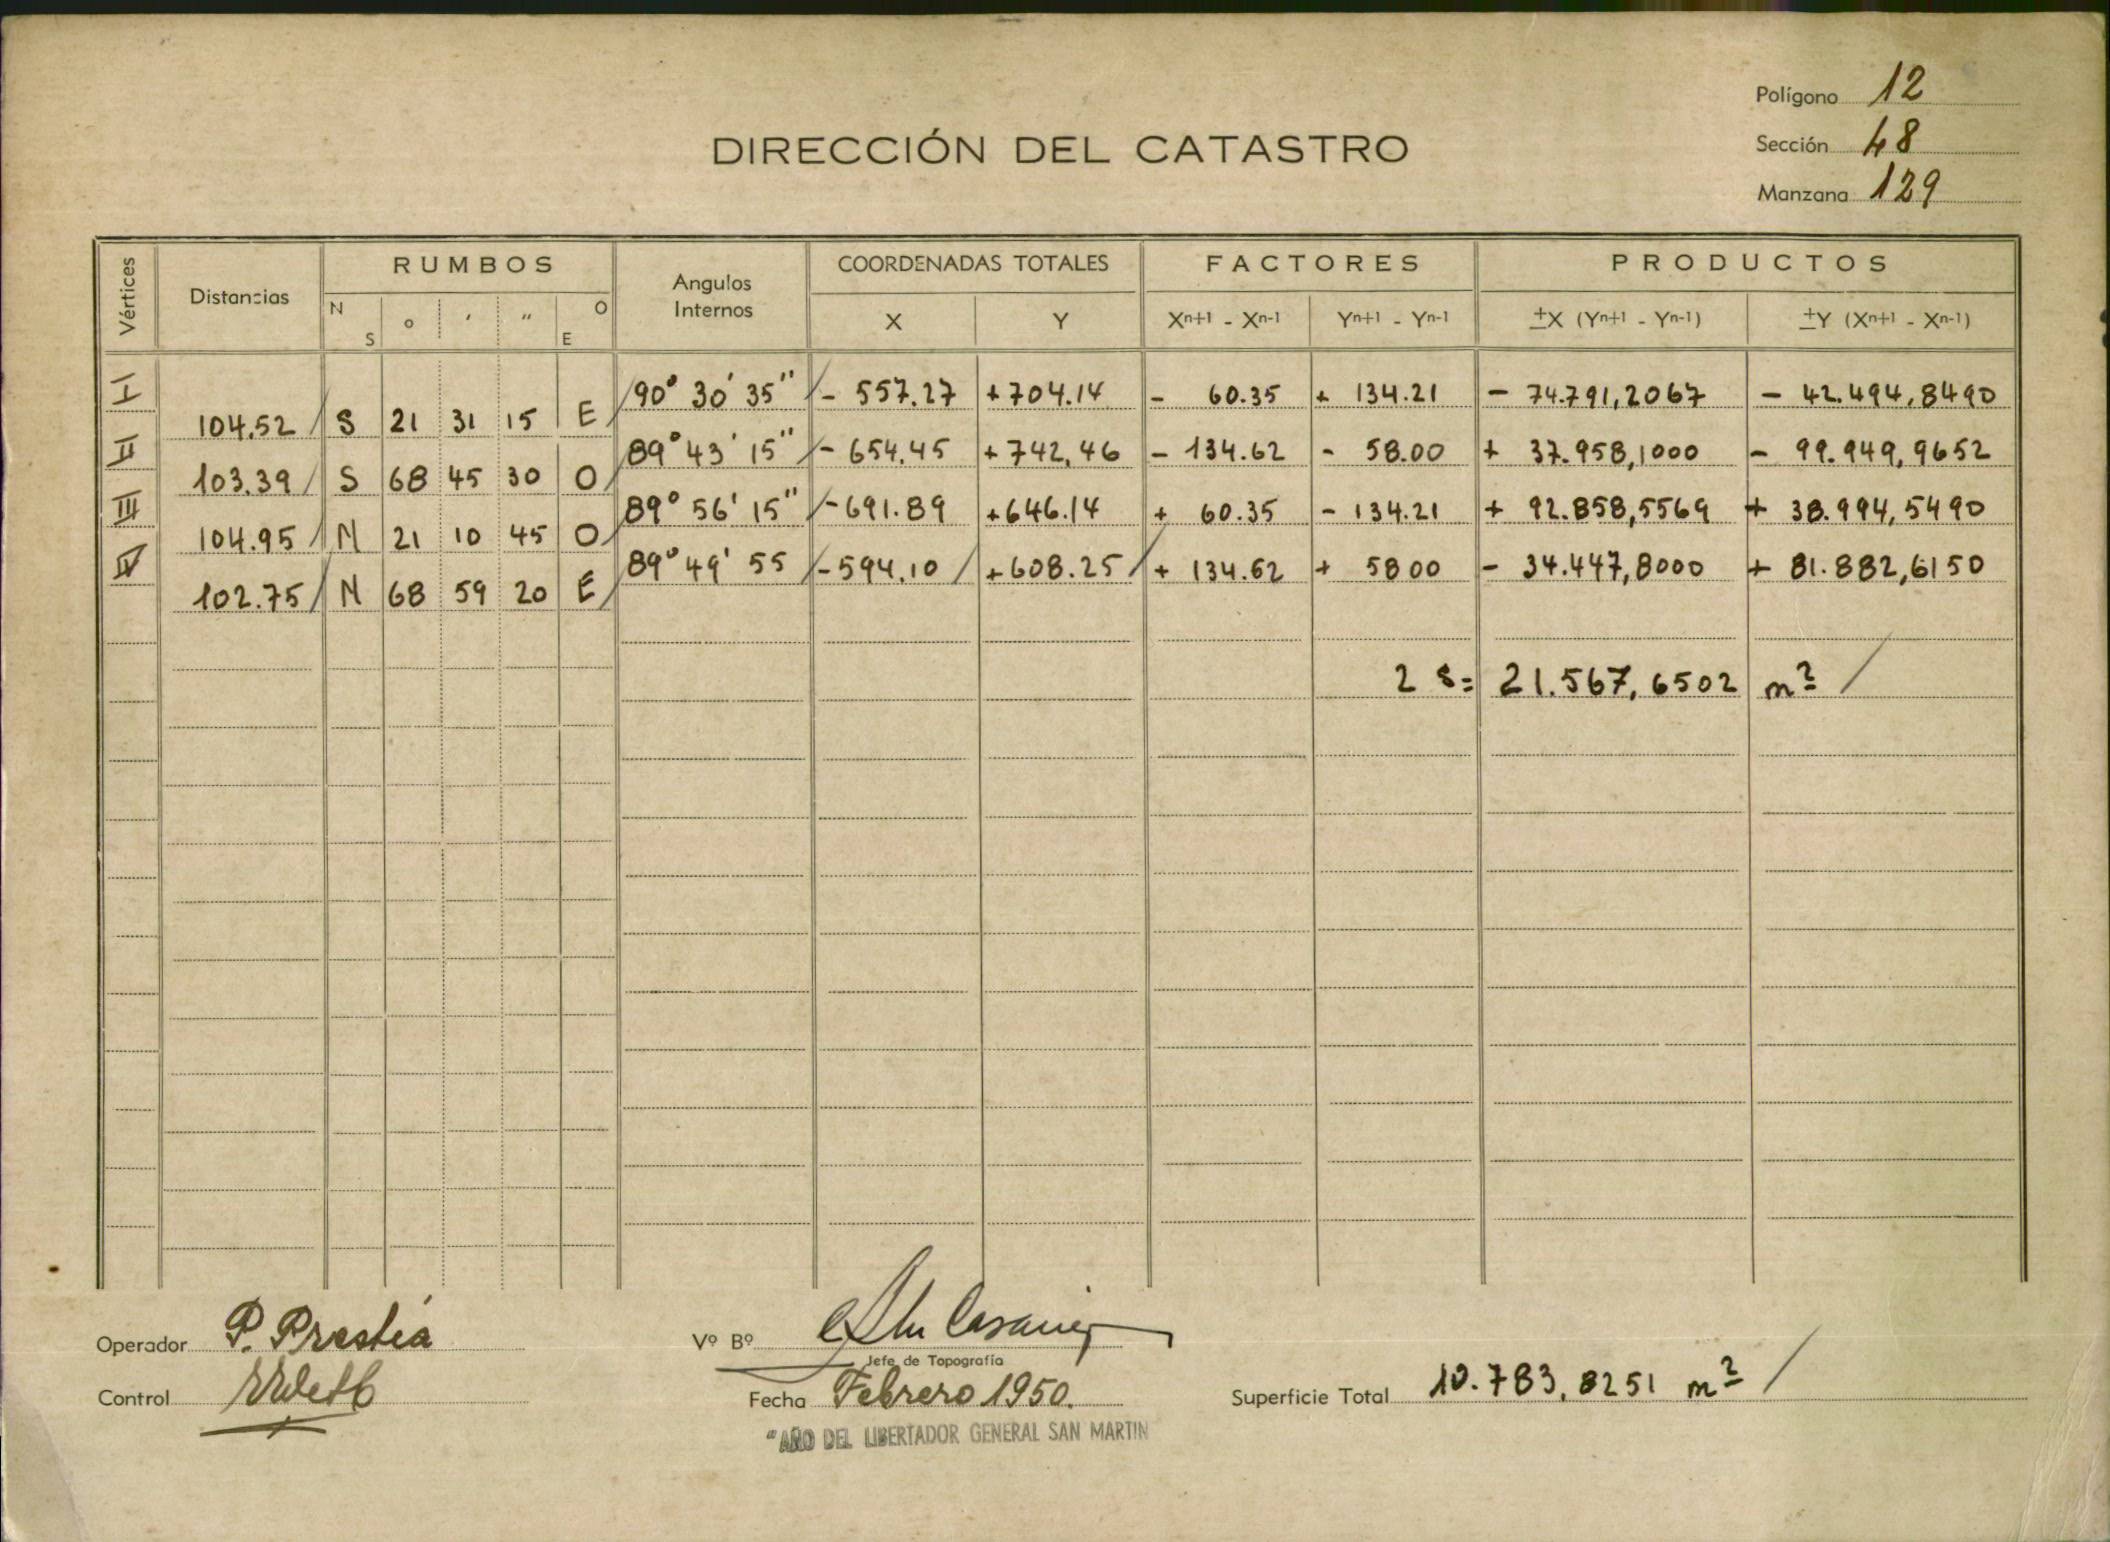 Polígono 12
DIRECCIÓN DEL CATASTRO
Sección 48
Manzana 129
Vértices Distancias RUMBOS Angulos Internos COORDENADAS TOTALES FACTORES PRODUCTOS
N S o ' " O E X Y Xn+1 - Xn-1 Yn+1 - Yn-1 ±X (Yn+1 - Yn-1) ±Y (Xn+1 - Xn-1)
I 90° 30' 35" - 557.27 +704.14 - 60.35 + 134.21 - 74.791,2067 - 42.494,8490
104.52 S 21 31 15 E
II 89° 43' 15" - 654.45 +742,46 - 134.62 - 58.00 + 37.958,1000 - 99.949,9652
103.39 S 68 45 30 O
III 89° 56' 15" -691.89 +646.14 + 60.35 - 134.21 + 92.858,5569 + 38.994,5490
104.95 N 21 10 45 O
IV 89° 49' 55 -594,10 +608.25 + 134.62 + 5800 - 34.447,8000 + 81.882,6150
102.75 N 68 59 20 E
2 S= 21.567,6502 m²
Operador P. Prestia Vº Bº
Jefe de Topografía
Control Fecha Febrero 1950. Superficie Total 10.783,8251 m²
"AÑO DEL LIBERTADOR GENERAL SAN MARTIN